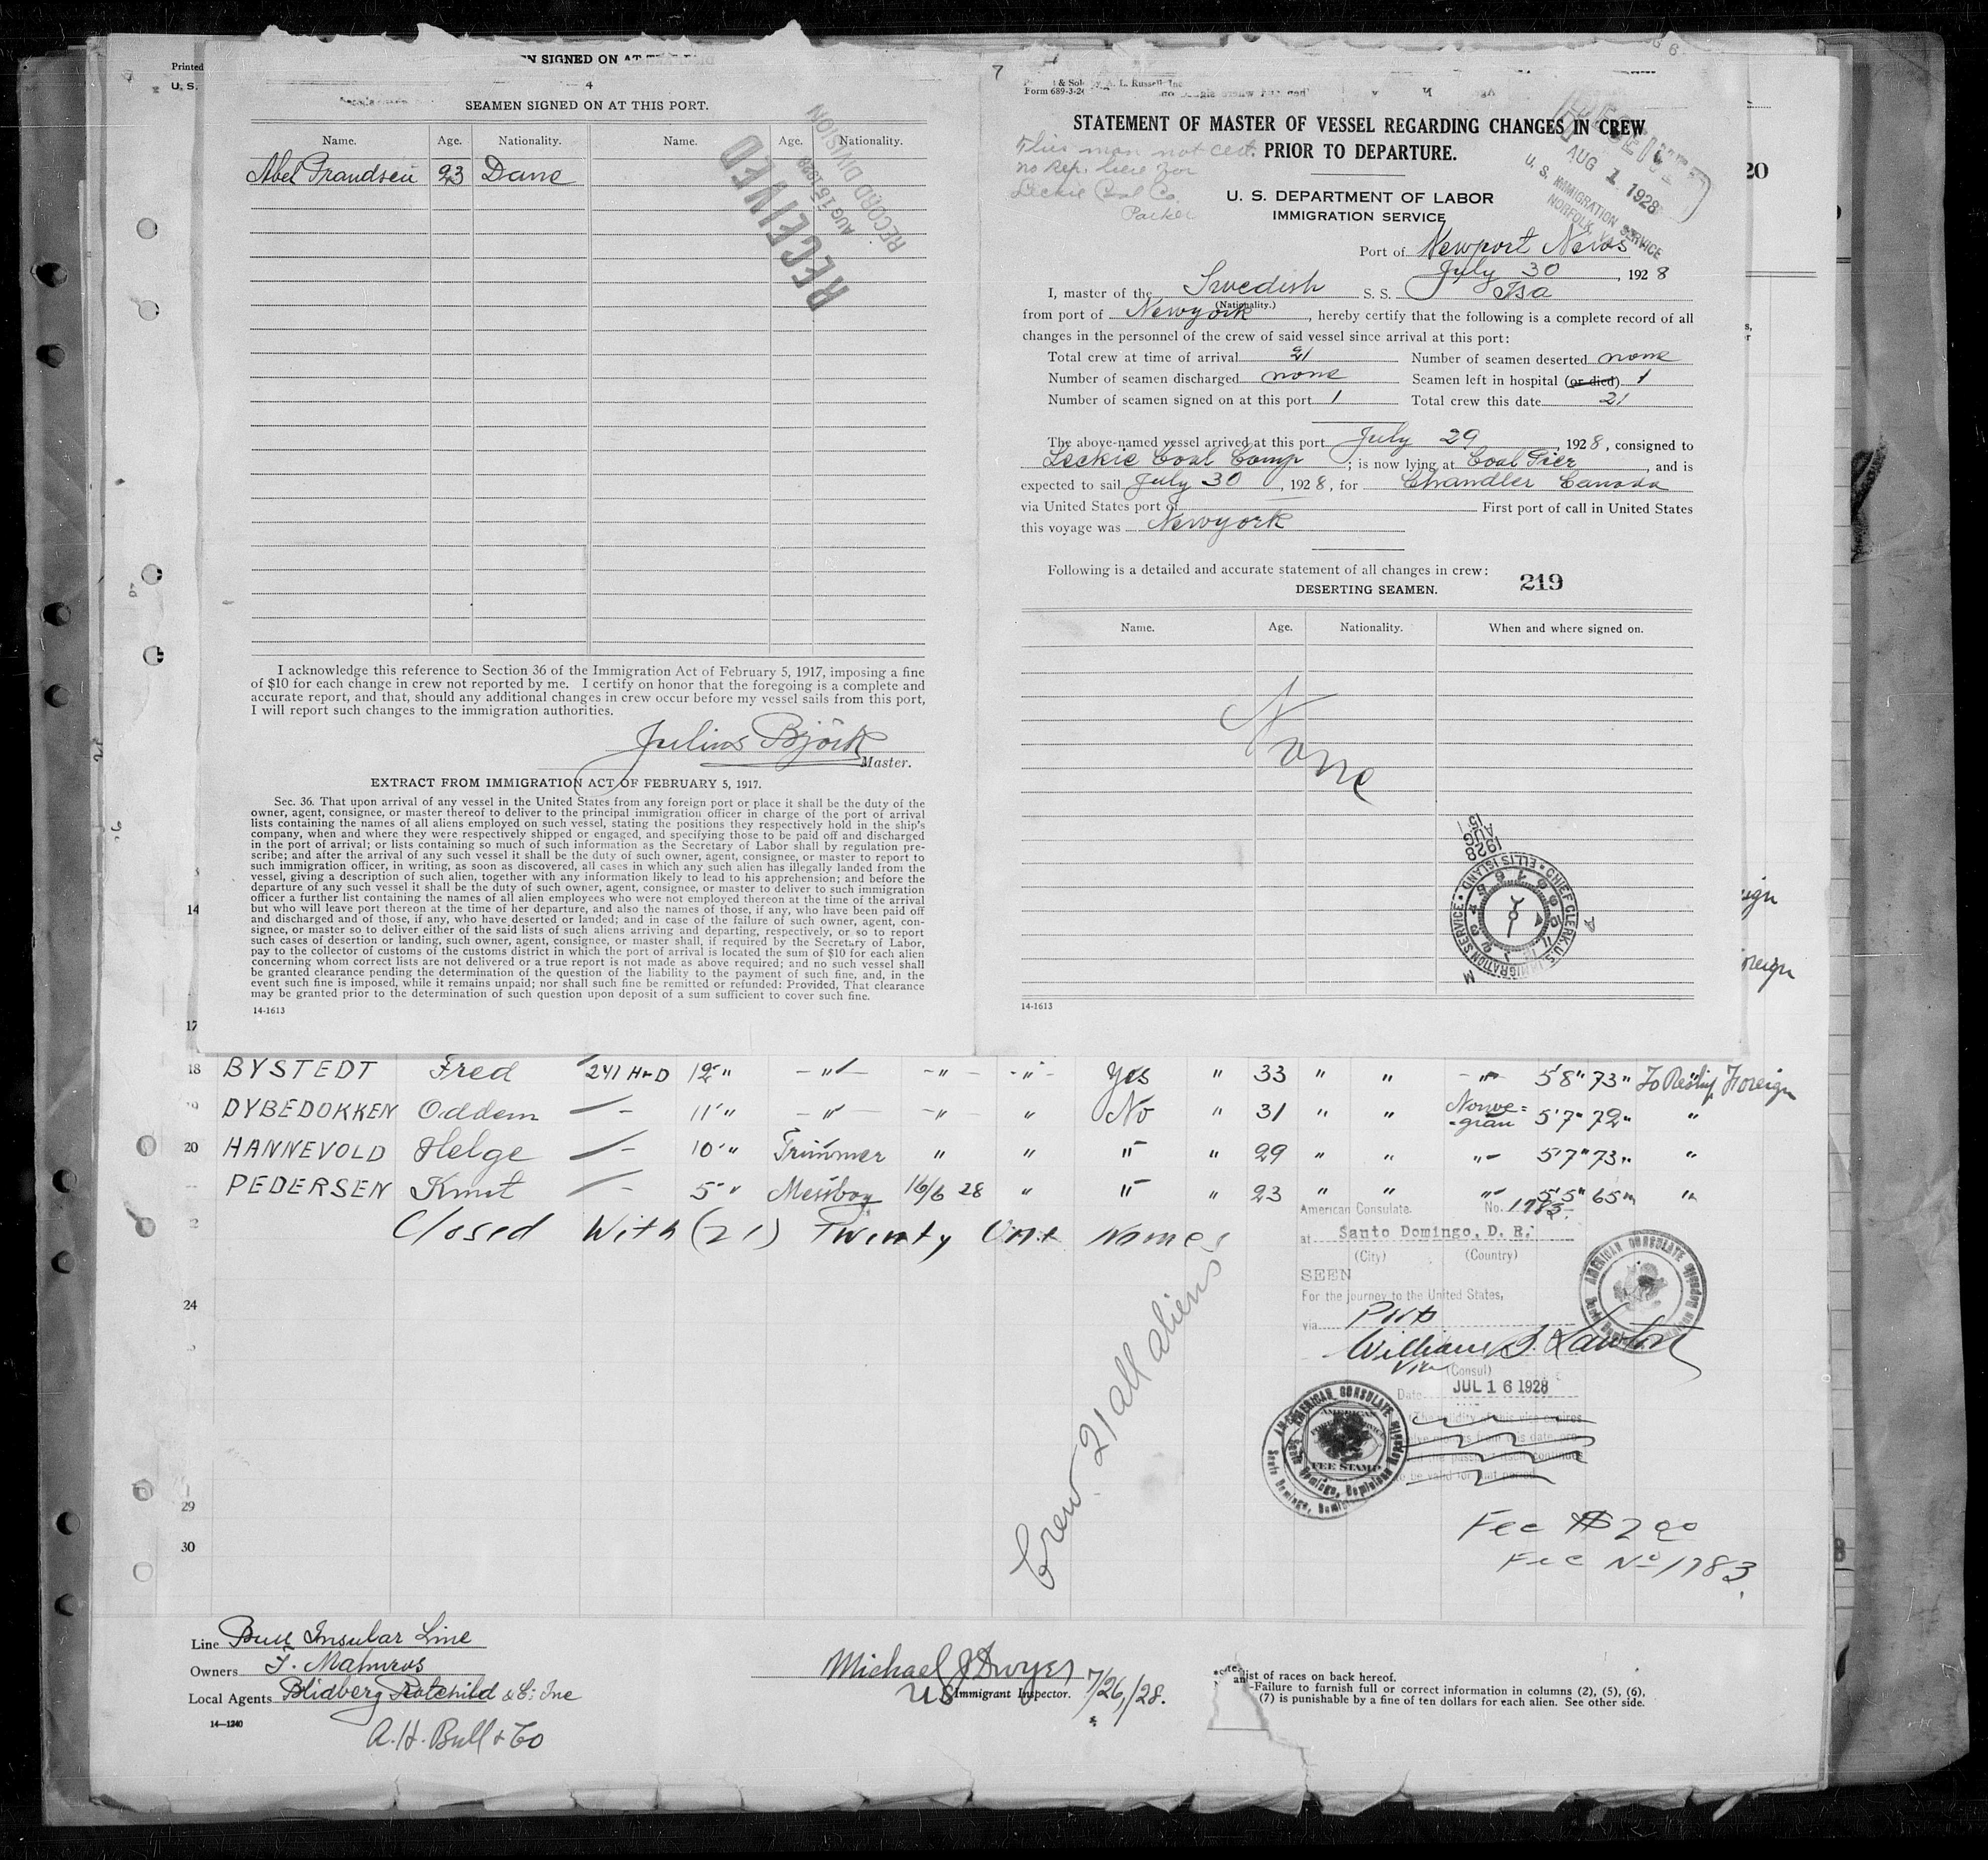 Printed
U. S.
N SIGNED ON AT
4
SEAMEN SIGNED ON AT THIS PORT.
Name. Age. Nationality. Name. Age. Nationality.
Abel Frandsen 23 Dane
RECEIVED
AUG 15 1928
RECORD DIVISION
I acknowledge this reference to Section 36 of the Immigration Act of February 5, 1917, imposing a fine
of $10 for each change in crew not reported by me. I certify on honor that the foregoing is a complete and
accurate report, and that, should any additional changes in crew occur before my vessel sails from this port,
I will report such changes to the immigration authorities.
Julius Björk
Master.
EXTRACT FROM IMMIGRATION ACT OF FEBRUARY 5, 1917.
Sec. 36. That upon arrival of any vessel in the United States from any foreign port or place it shall be the duty of the
owner, agent, consignee, or master thereof to deliver to the principal immigration officer in charge of the port of arrival
lists containing the names of all aliens employed on such vessel, stating the positions they respectively hold in the ship's
company, when and where they were respectively shipped or engaged, and specifying those to be paid off and discharged
in the port of arrival; or lists containing so much of such information as the Secretary of Labor shall by regulation pre-
scribe; and after the arrival of any such vessel it shall be the duty of such owner, agent, consignee, or master to report to
such immigration officer, in writing, as soon as discovered, all cases in which any such alien has illegally landed from the
vessel, giving a description of such alien, together with any information likely to lead to his apprehension; and before the
departure of any such vessel it shall be the duty of such owner, agent, consignee, or master to deliver to such immigration
officer a further list containing the names of all alien employees who were not employed thereon at the time of the arrival
but who will leave port thereon at the time of her departure, and also the names of those, if any, who have been paid off
and discharged and of those, if any, who have deserted or landed; and in case of the failure of such owner, agent, con-
signee, or master so to deliver either of the said lists of such aliens arriving and departing, respectively, or so to report
such cases of desertion or landing, such owner, agent, consignee, or master shall, if required by the Secretary of Labor,
pay to the collector of customs of the customs district in which the port of arrival is located the sum of $10 for each alien
concerning whom correct lists are not delivered or a true report is not made as above required; and no such vessel shall
be granted clearance pending the determination of the question of the liability to the payment of such fine, and, in the
event such fine is imposed, while it remains unpaid; nor shall such fine be remitted or refunded: Provided, That clearance
may be granted prior to the determination of such question upon deposit of a sum sufficient to cover such fine.
14-1613
7
& Sold by A. L. Russell, Inc
Form 689-3-24
STATEMENT OF MASTER OF VESSEL REGARDING CHANGES IN CREW
PRIOR TO DEPARTURE.
This man not cert.
no Rep. here for
Leckie Coal Co.
Parker
RECEIVED
AUG 1 1928
U. S. IMMIGRATION SERVICE
NORFOLK, VA.
U. S. DEPARTMENT OF LABOR
IMMIGRATION SERVICE
Port of Newport News
July 30, 1928
I, master of the Swedish S. S. Isa
(Nationality.)
from port of Newyork, hereby certify that the following is a complete record of all
changes in the personnel of the crew of said vessel since arrival at this port:
Total crew at time of arrival 21 Number of seamen deserted none
Number of seamen discharged none Seamen left in hospital (or died) 1
Number of seamen signed on at this port 1 Total crew this date 21
The above-named vessel arrived at this port July 29, 1928, consigned to
Leckie Coal Comp; is now lying at Coal Pier, and is
expected to sail July 30, 1928, for Chandler Canada
via United States port of First port of call in United States
this voyage was Newyork
Following is a detailed and accurate statement of all changes in crew:
219
DESERTING SEAMEN.
Name. Age. Nationality. When and where signed on.
None
1928 AUG 15
CHIEF CLERK, U.S. IMMIGRATION SERVICE • ELLIS ISLAND
14-1613
20
eign
oreign
14
17
18 BYSTEDT Fred 241 H-D 12 " " " " Yes " 33 " " " 5'8" 73" To Reship Foreign
DYBEDOKKEN Oddem 11 " " " " No " 31 " " Norwe=
-gian 5'7" 72" "
20 HANNEVOLD Helge 10 " Trimmer " " " " 29 " " " 5'7" 73" "
PEDERSEN Knut 5 " Messboy 16/6 28 " " " 23 " " " 5'5" 65" "
Closed With (21) Twenty One Names
24
29
30
Crew 21 all aliens
American Consulate. No. 1783
at Santo Domingo, D. R.
(City) (Country)
SEEN
For the journey to the United States,
via Ports
William B. Lawton
Vice (Consul)
Date JUL 16 1928
AMERICAN CONSULATE
Santo Domingo, Dominican Republic
AMERICAN
FEE STAMP
Fee $2.00
Fee No 1783.
Line Bull Insular Line
Owners
Local Agents Blidberg Rotchild & Co Inc
14—1240
A. H. Bull & Co
Michael J Dwyer 7/26/28.
US Immigrant Inspector.
list of races on back hereof.
-Failure to furnish full or correct information in columns (2), (5), (6),
(7) is punishable by a fine of ten dollars for each alien. See other side.